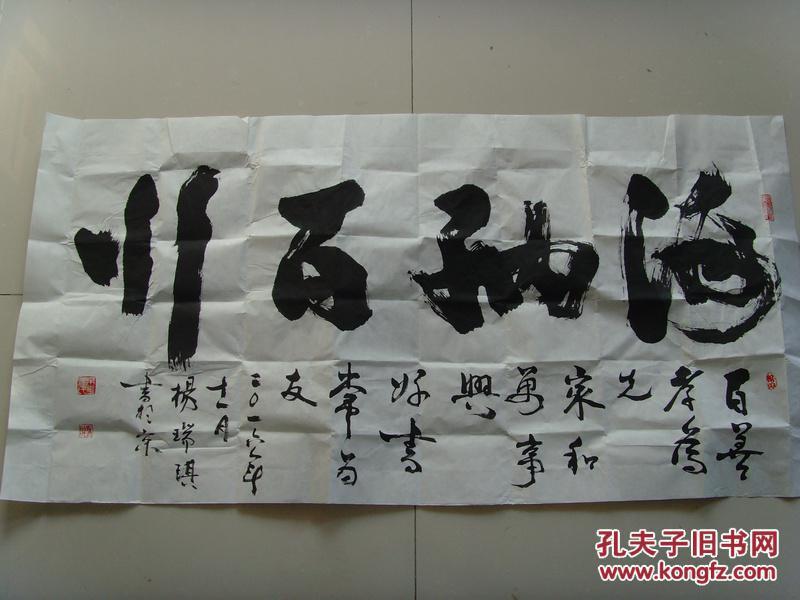 海纳百川
百善
孝為
先
家和
萬事
興
好書
常为
友
二〇一六年
十一月
楊瑞琪
書於京
孔夫子旧书网
www.kongfz.com